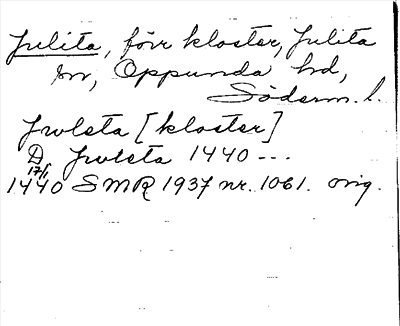 Julita, förr kloster, Julita
sn, Oppunda hd,
Söderm. l.
Jwleta [kloster]
D Jwleta 1440 ---
17/1
1440 SMR 1937 nr. 1061. orig.